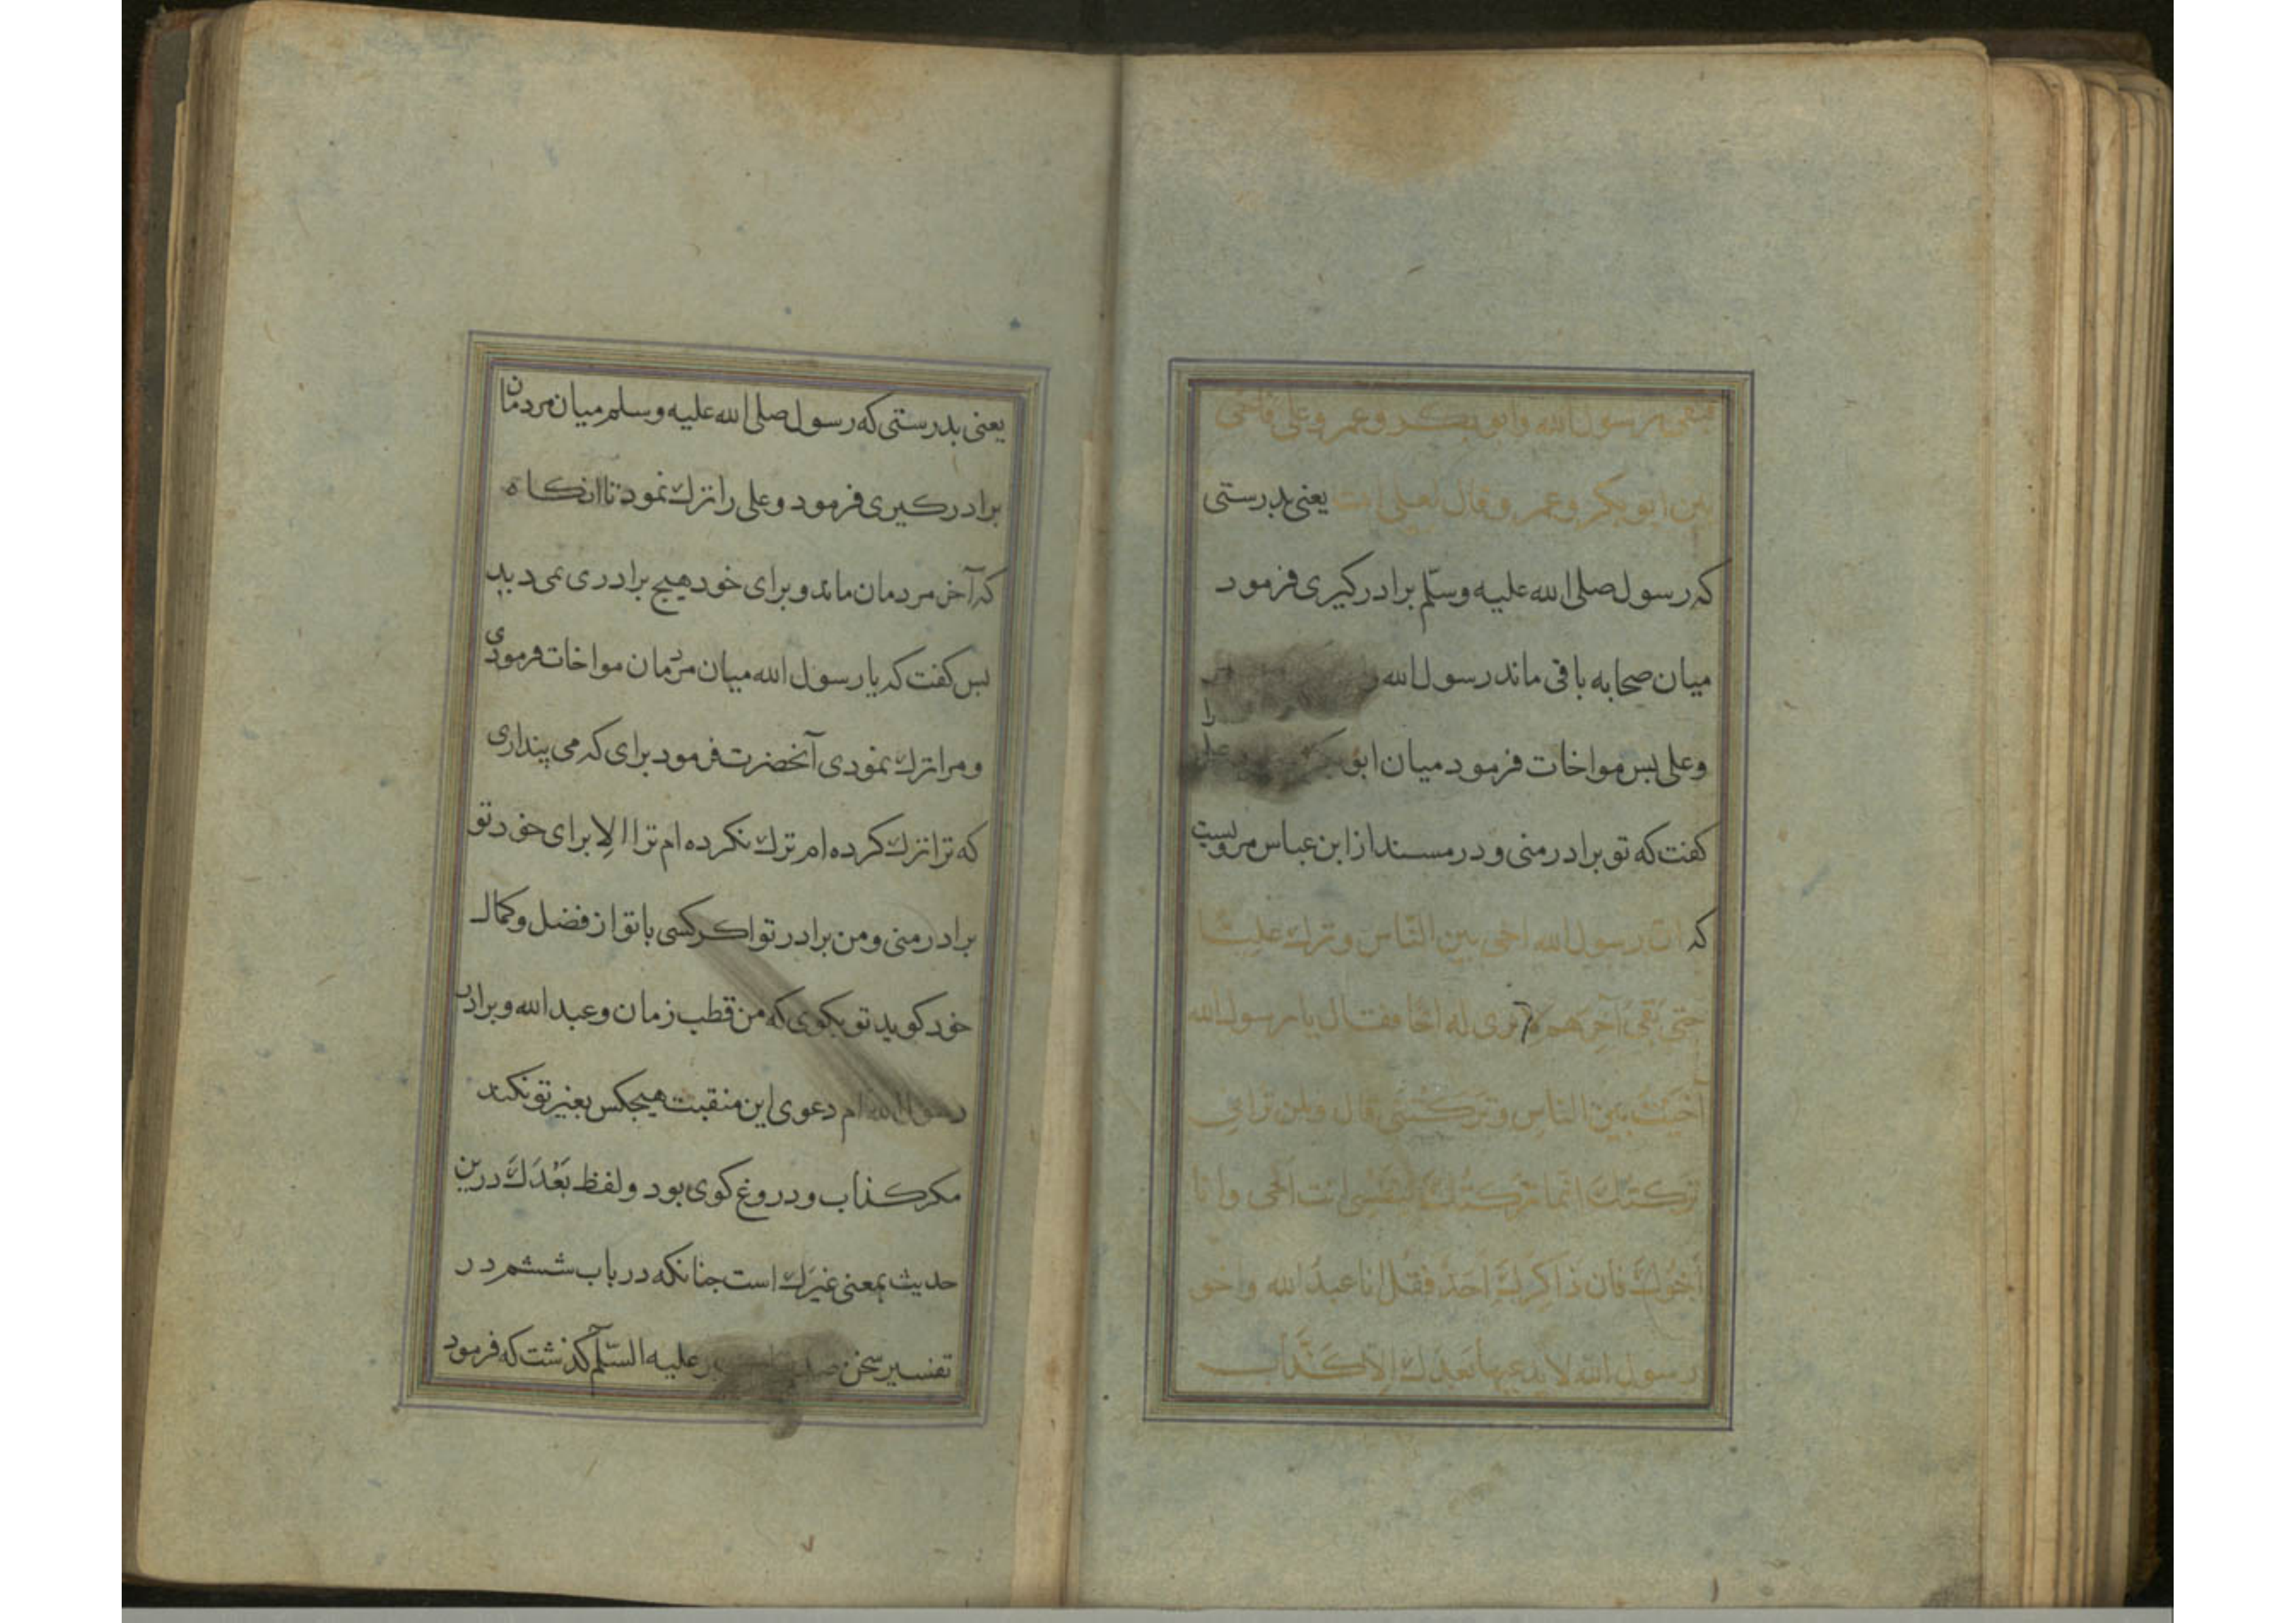 فبقی رسول الله وابو بکر وعمر وعلی فآخی
بین ابو بکر وعمر وقال لعلی انت یعنی بدرستی
که رسول صلی الله علیه وسلّم برادرکیری فرمود
میان صحابه باقی ماند رسول الله و
وعلی بس مواخات فرمود میان ابو
کفت که تو برادر منی ودر مسند از ابن عباس مرویست
که انّ رسول الله اخی بین النّاس وترك علیّا
حتی بقی آخرهم لا یری له اخا فقال یا رسول الله
آخیت بین الناس وترکتنی قال ولمن ترانی
ترکتك انّما ترکتك لنفسی انت اخی وانا
اخوك فان ذاکرك احد فقل انا عبد الله واخو
رسول الله لا یدعیها بعدك الّا کذّاب
یعنی بدرستی که رسول صلی الله علیه وسلم میان مردمان
برادرکیری فرمود وعلی را ترك نمود تا انکاه
که آخر مردمان ماند وبرای خود هیچ برادری نمی دید
بس کفت که یا رسول الله میان مردمان مواخات فرمودی
ومرا ترك نمودی آنحضرت فرمود برای که می پنداری
که ترا ترك کرده ام ترك نکرده ام ترا الا برای خود تو
برادر منی ومن برادر تو اکر کسی با تو از فضل وکمال
خود کوید تو بکوی که من قطب زمان وعبد الله وبرادر
رسول الله ام دعوی این منقبت هیچکس بغیر تو نکند
مکر کذاب ودروغ کوی بود ولفظ بَعْدَكَ درین
حدیث بمعنی غیرك است جنانکه در باب ششم در
تفسیر سخن علیه السّلام کذشت که فرمود